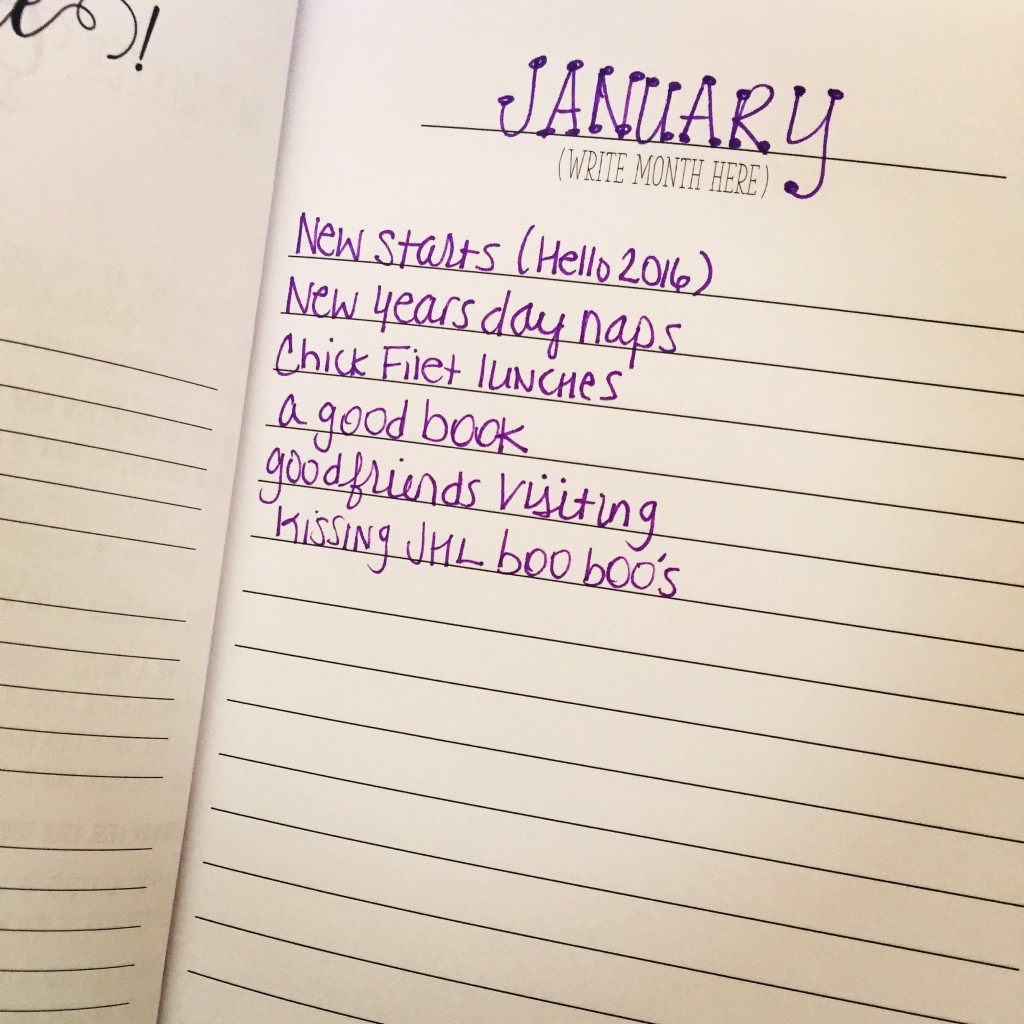 JANUARY
(WRITE MONTH HERE)
New starts (Hello 2016)
New years day naps
Chick Filet lunches
a good book
good friends visiting
kissing JHL boo boo's